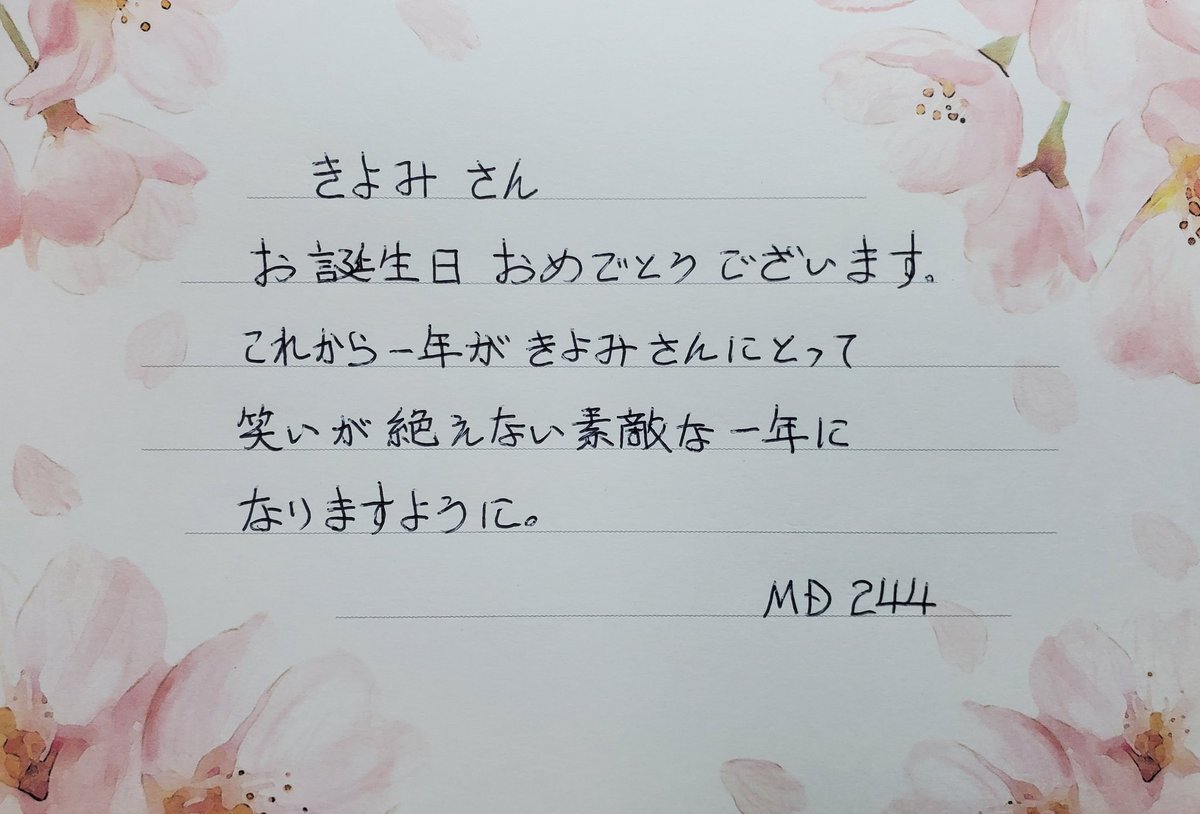 きよみ さん
お誕生日 おめでとうございます。
これから一年がきよみさんにとって
笑いが絶えない素敵な一年に
なりますように。
MĐ 244